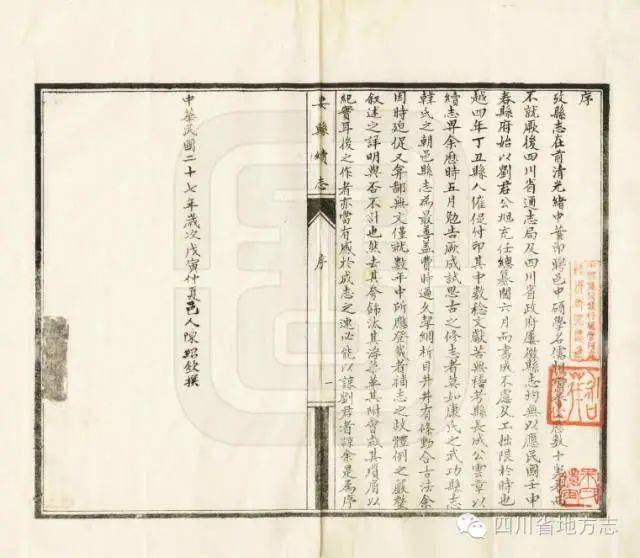 序
攷縣志在前清光緒中葉即聯邑中碩學名儒
數十
不就厥後四川省通志局及四川省政府屢徵縣志均無以應民國壬申
春縣府始以劉君公旭充任總纂閱六月而書成不虞及工拙限於時也
越四年丁丑縣人催促付印其中數稔文獻苦無稽考縣長成公雲章以
續志畀余歷時五月勉告厥成試思古之修志著莫如康氏之武功縣志
韓氏之朝邑縣志為最善蓋費時過久挈綱析目井井有條動合古法余
因時迫促又奔鄙無文僅就數年中所應登載者補志之故體例之嚴整
敘述之詳明與否不計也然去其夸飾汰其海華革其附會裁其瑣屑以
紀實耳後之作者亦當有感於成志之速必能以諒劉君者諒余是為序
安縣續志
序
一
中華民國二十七年歲次戊寅仲夏邑人陳紹欽撰
四川省地方志